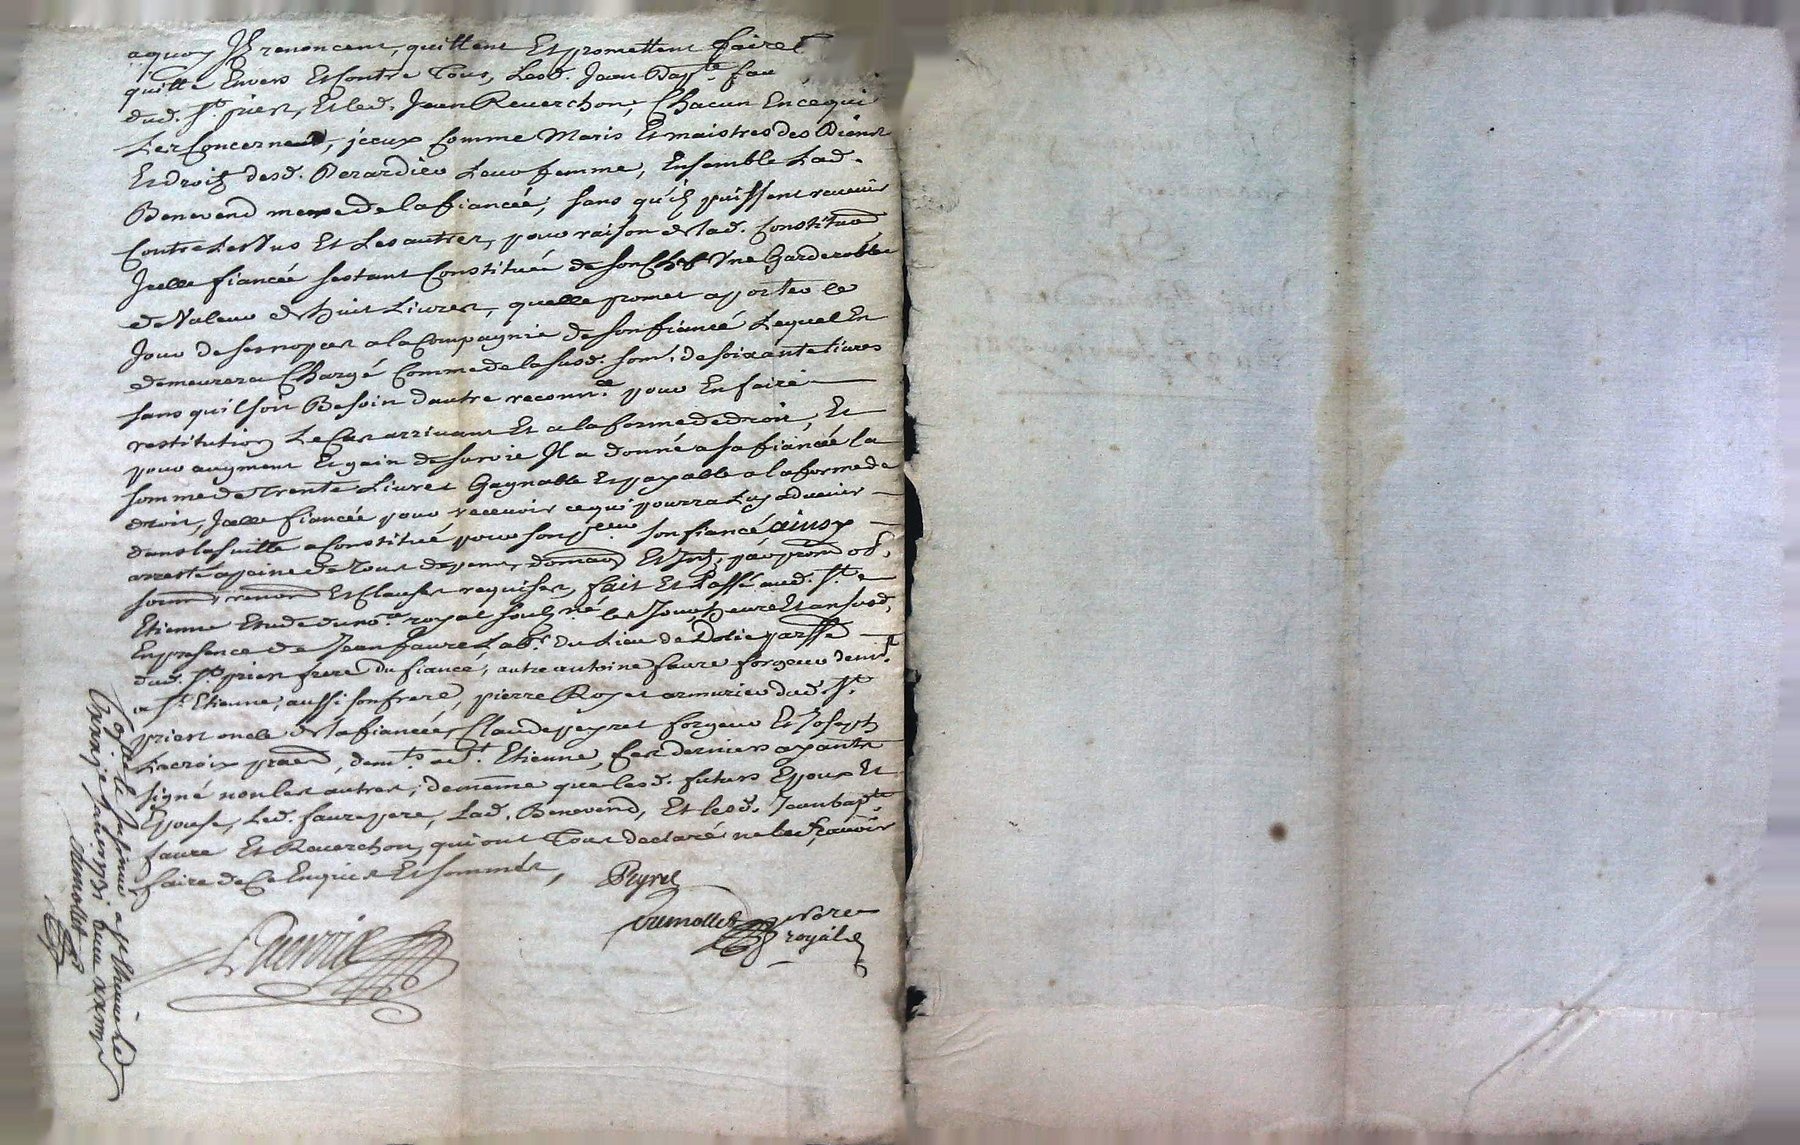 aquoy Ils renoncent, quittent Et promettent faire
quitte Envers Et Contre Tous, Lesd. Jean Bapte. fau
dud. St. priest, Et led. Jean Reverchon, Chacun Ence qui
Les Concerne, jceux Comme Maris Et maistres des Biens
Et droitz desd. Berardier Leur femme, Ensemble Lad.
Benevend mere de la fiancée, sans qu'ilz puissent revenir
Contre Les Uns Et Les autres, pour raison de lad. Constituon
Jcelle fiancée sestant Constituée de son Chef Une Garderobbe
de Valeur de huit Livres, quelle promet aporter le
Jour de ses nopces a la Compagnie de son fiancé Lequel En
demeurera Chargé Comme de la susd. some. de soixante livres
sans quil soit Besoin dautre reconnce. pour En faire
restitution Le Cas arrivant Et a la forme de droit, Et
pour augment Et gain de survie Il a donné a sa fiancée la
somme de Trente Livres Gagnable Et payable a la forme de
droit, Jcelle fiancée pour recevoir ce qui pourra Luy advenir
dans la suitte a Constitué pour son preur. son fiancé ainsy
arresté a peine de Tous depens, domages Et Intz, par prom obl.
soumons renons Et Clauses requises, fait Et Passé aud. St.
Etienne Etude du nore. royal soubzné. les Jour, heure Et an susd.
En presence de Jean faure Labr. du Lieu de parsse
dud. St. priest frere du fiancé, autre antoine faure forgeur demt.
a St. Etienne, aussi son frere, pierre Royet armurier dud. St.
priest oncle de la fiancée, Claude peyret forgeur Et Joseph
Lacroix praen, demts. aud. St. Etienne, Ces derniers ayants
signé non les autres, de meme que lesd. futurs Epoux Et
Epouse, Led. faure pere, Lad. Benevend, Et lesd. Jean bapte.
faure Et Reverchon, qui ont Tous declaré ne le sçavoir
faire de Ce Enquis Et sommés,
Peyret
Lacroix
Dumollet nore
royal
Controlé Insinué a St Etienne Le
Dumollet